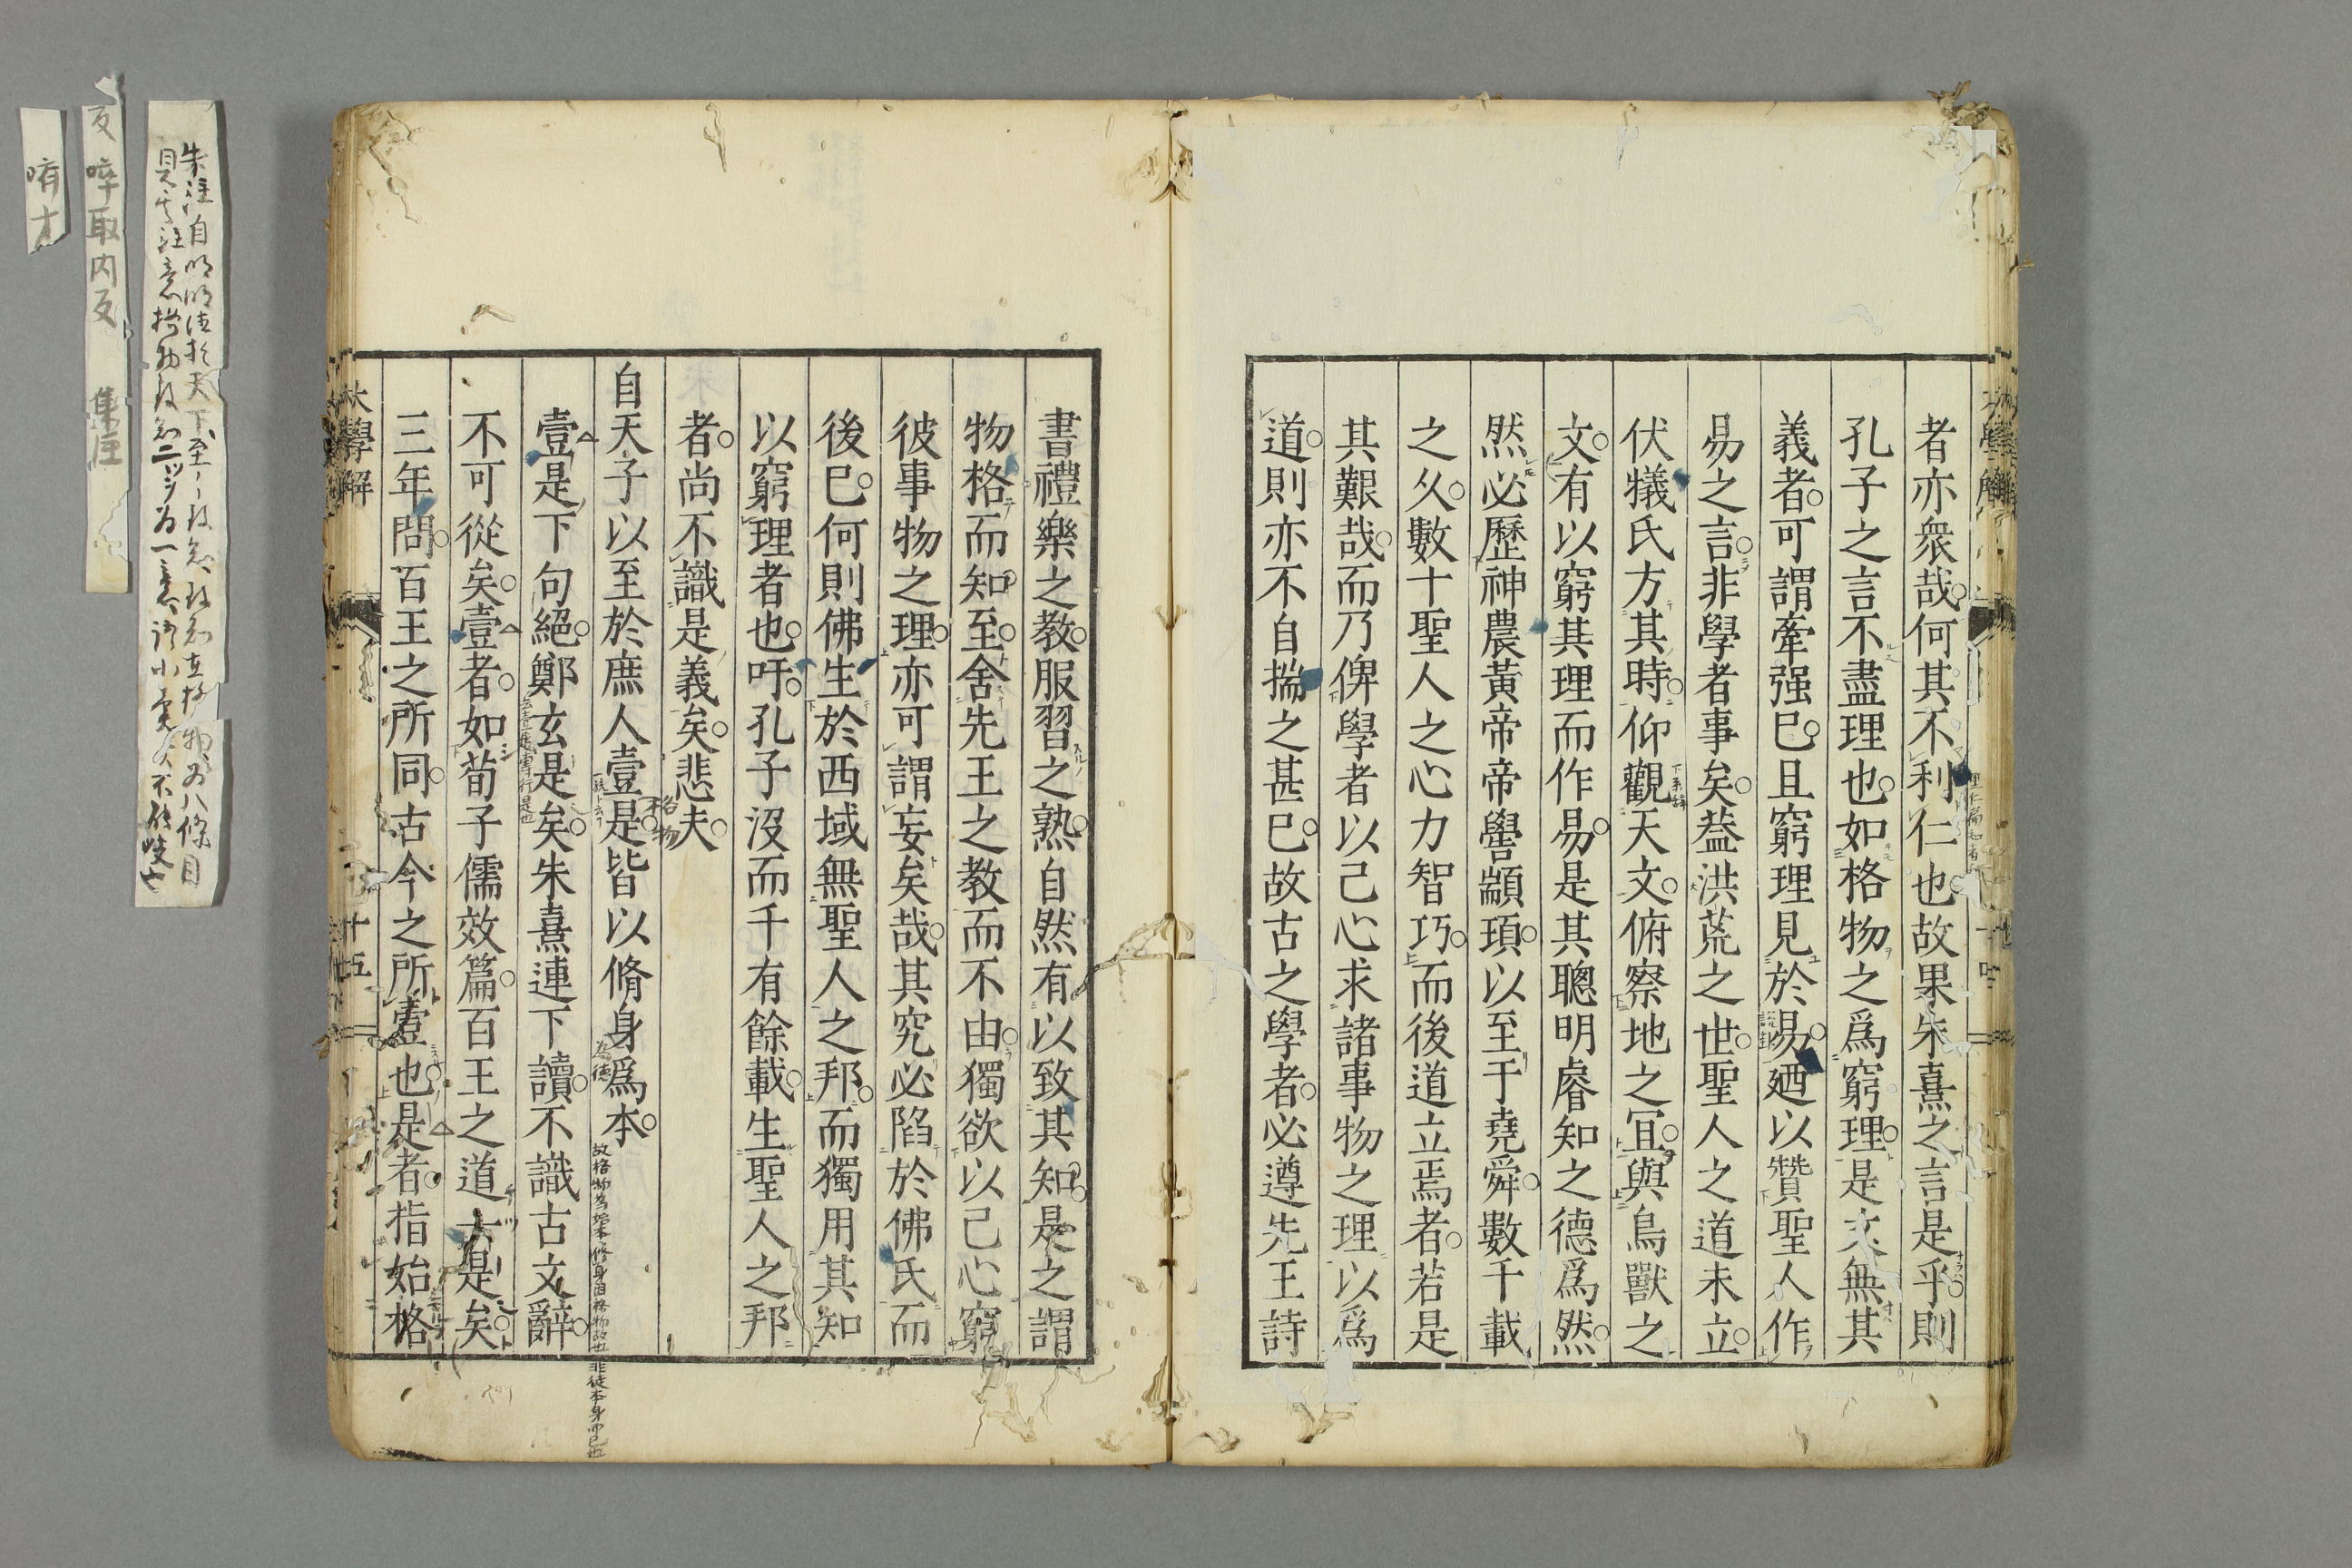 者亦衆哉何其不利仁也故果朱熹之言是乎則
孔子之言不盡理也如格物之爲窮理是文無其
義者可謂牽强已且窮理見於易廼以贊聖人作
易之言非學者事矣葢洪荒之世聖人之道未立
伏犧氏方其時仰觀天文俯察地之宜與鳥獸之
文有以窮其理而作易是其聰明睿知之德爲然
然必歷神農黃帝帝嚳顓頊以至于堯舜數千載
之久數十聖人之心力智巧而後道立焉者若是
其艱哉而乃俾學者以己心求諸事物之理以爲
道則亦不自揣之甚已故古之學者必遵先王詩
書禮樂之教服習之熟自然有以致其知是之謂
物格而知至舍先王之教而不由獨欲以己心窮
彼事物之理亦可謂妄矣哉其究必陷於佛氏而
後已何則佛生於西域無聖人之邦而獨用其知
以窮理者也吁孔子沒而千有餘載生聖人之邦
者尚不識是義矣悲夫
格物
自天子以至於庶人壹是皆以脩身爲本
故格物為始本修身因格物故也非徒本身而已也
壹是下句絕鄭玄是矣朱熹連下讀不識古文辭
不可從矣壹者如荀子儒效篇百王之道一是矣
三年問百王之所同古今之所壹也是者指始格
大學解
十五
朱注自明明德於天下至
集註